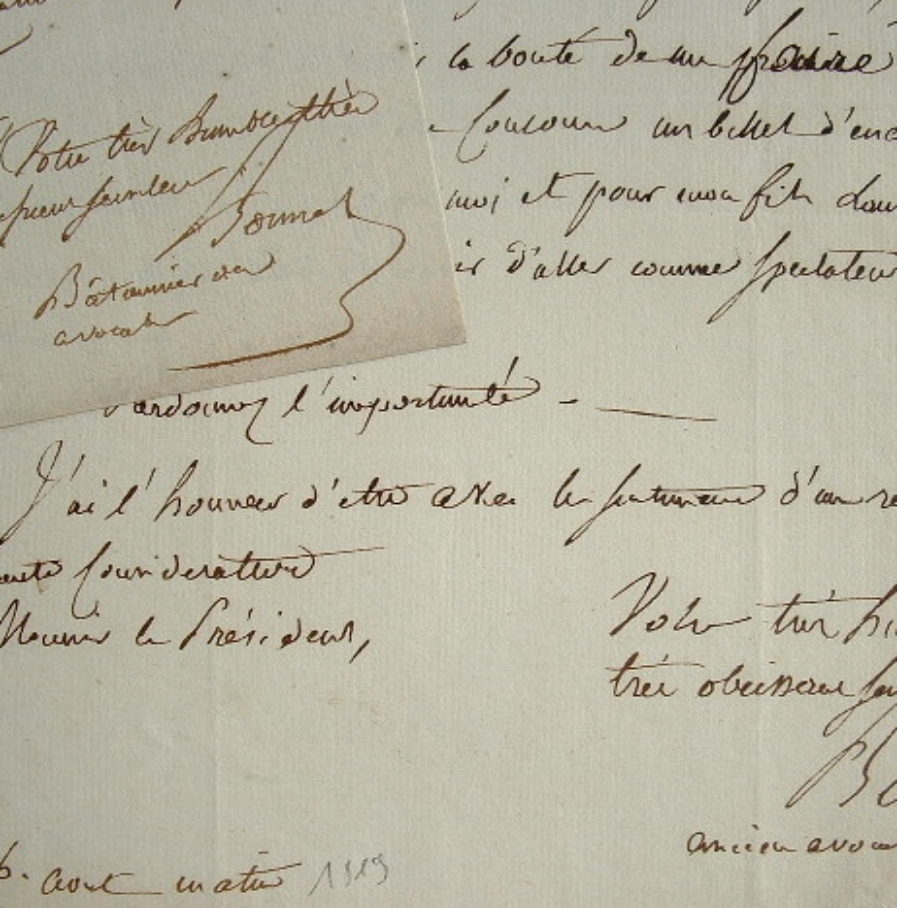 Votre très humble & très
Bonnet
Bâtonnier des
avocats
la bonté de me faire
un billet d'en
moi et pour mon fils dans
ir d'aller comme spectateur
Pardonnez l'importunité -
J'ai l'honneur d'être avec les sentimens d'un re
Considération
Monsieur le Président,
Votre très hu
très obéissant ser
Bo
ancien avoca
août matin 1819